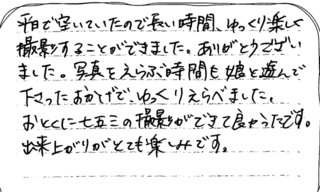 平日で空いていたので長い時間、ゆっくり楽しく
撮影することができました。ありがとうござい
ました。写真をえらぶ時間も娘と遊んで
下さったおかげで、ゆっくりえらべました。
おとくに七五三の撮影ができて良かったです。
出来上がりがとても楽しみです。